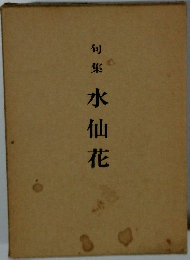 句集
水仙花